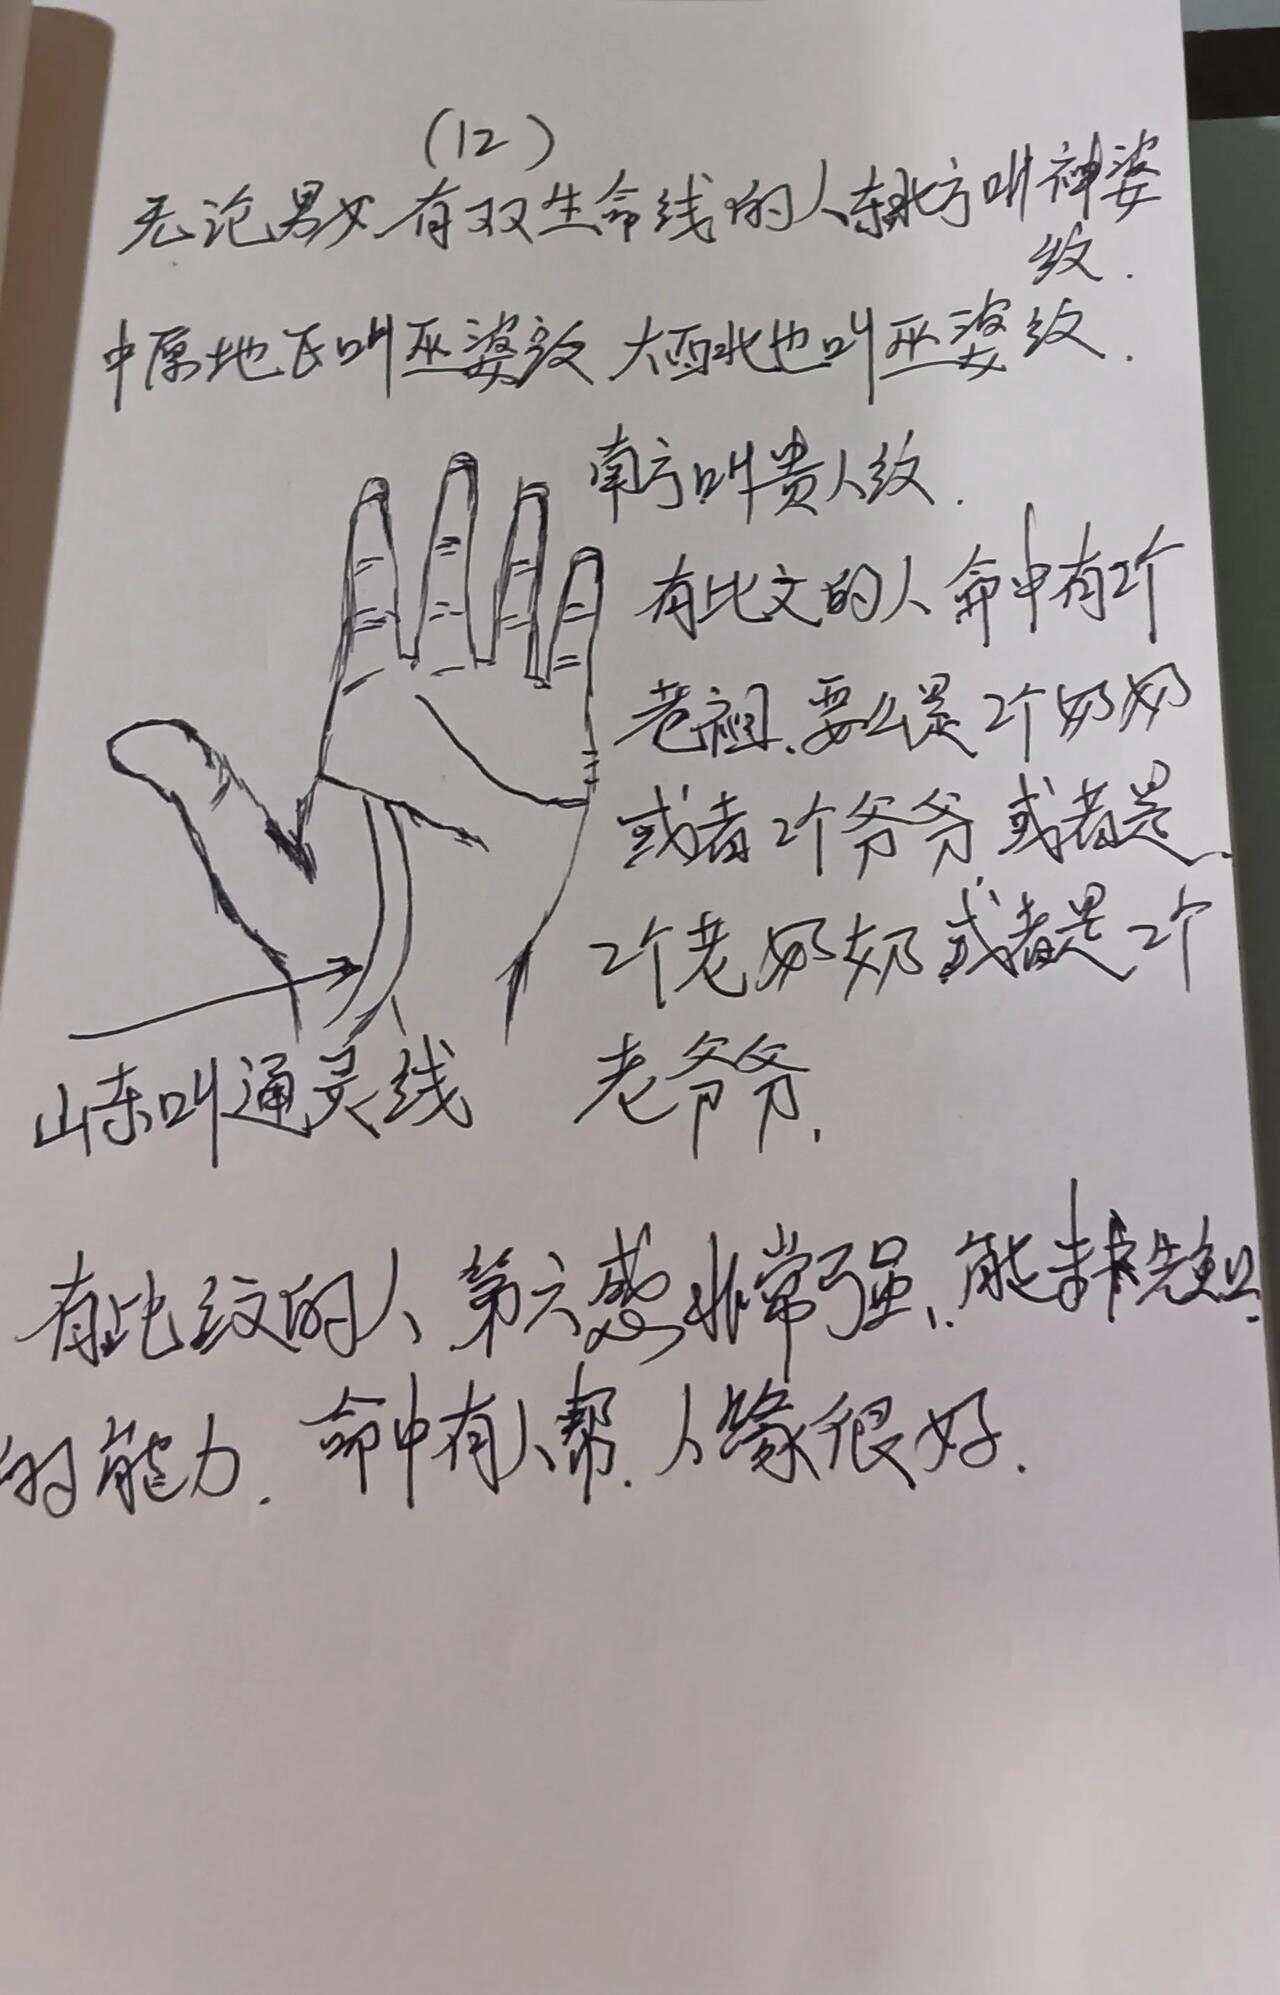 (12)
无论男女有双生命线的人东北方叫神婆
纹.
中原地区叫巫婆纹 大西北也叫巫婆纹.
南方叫贵人纹.
有此文的人命中有2个
老祖.要么是2个奶奶
或者2个爷爷 或者是.
2个老奶奶或者是2个
老爷爷.
山东叫通灵线
有此纹的人、第六感非常强、能未卜先知.
的能力. 命中有人帮. 人缘很好.